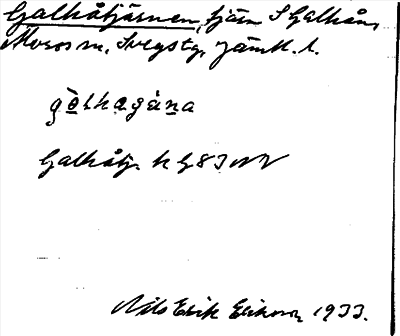 Galhåtjärnen, tjärn S Galhån,
Moros m, Svegs tg, Jämtl. l.
Galhåtj. k G83 NV
Nils Erik Eriksson 1933.